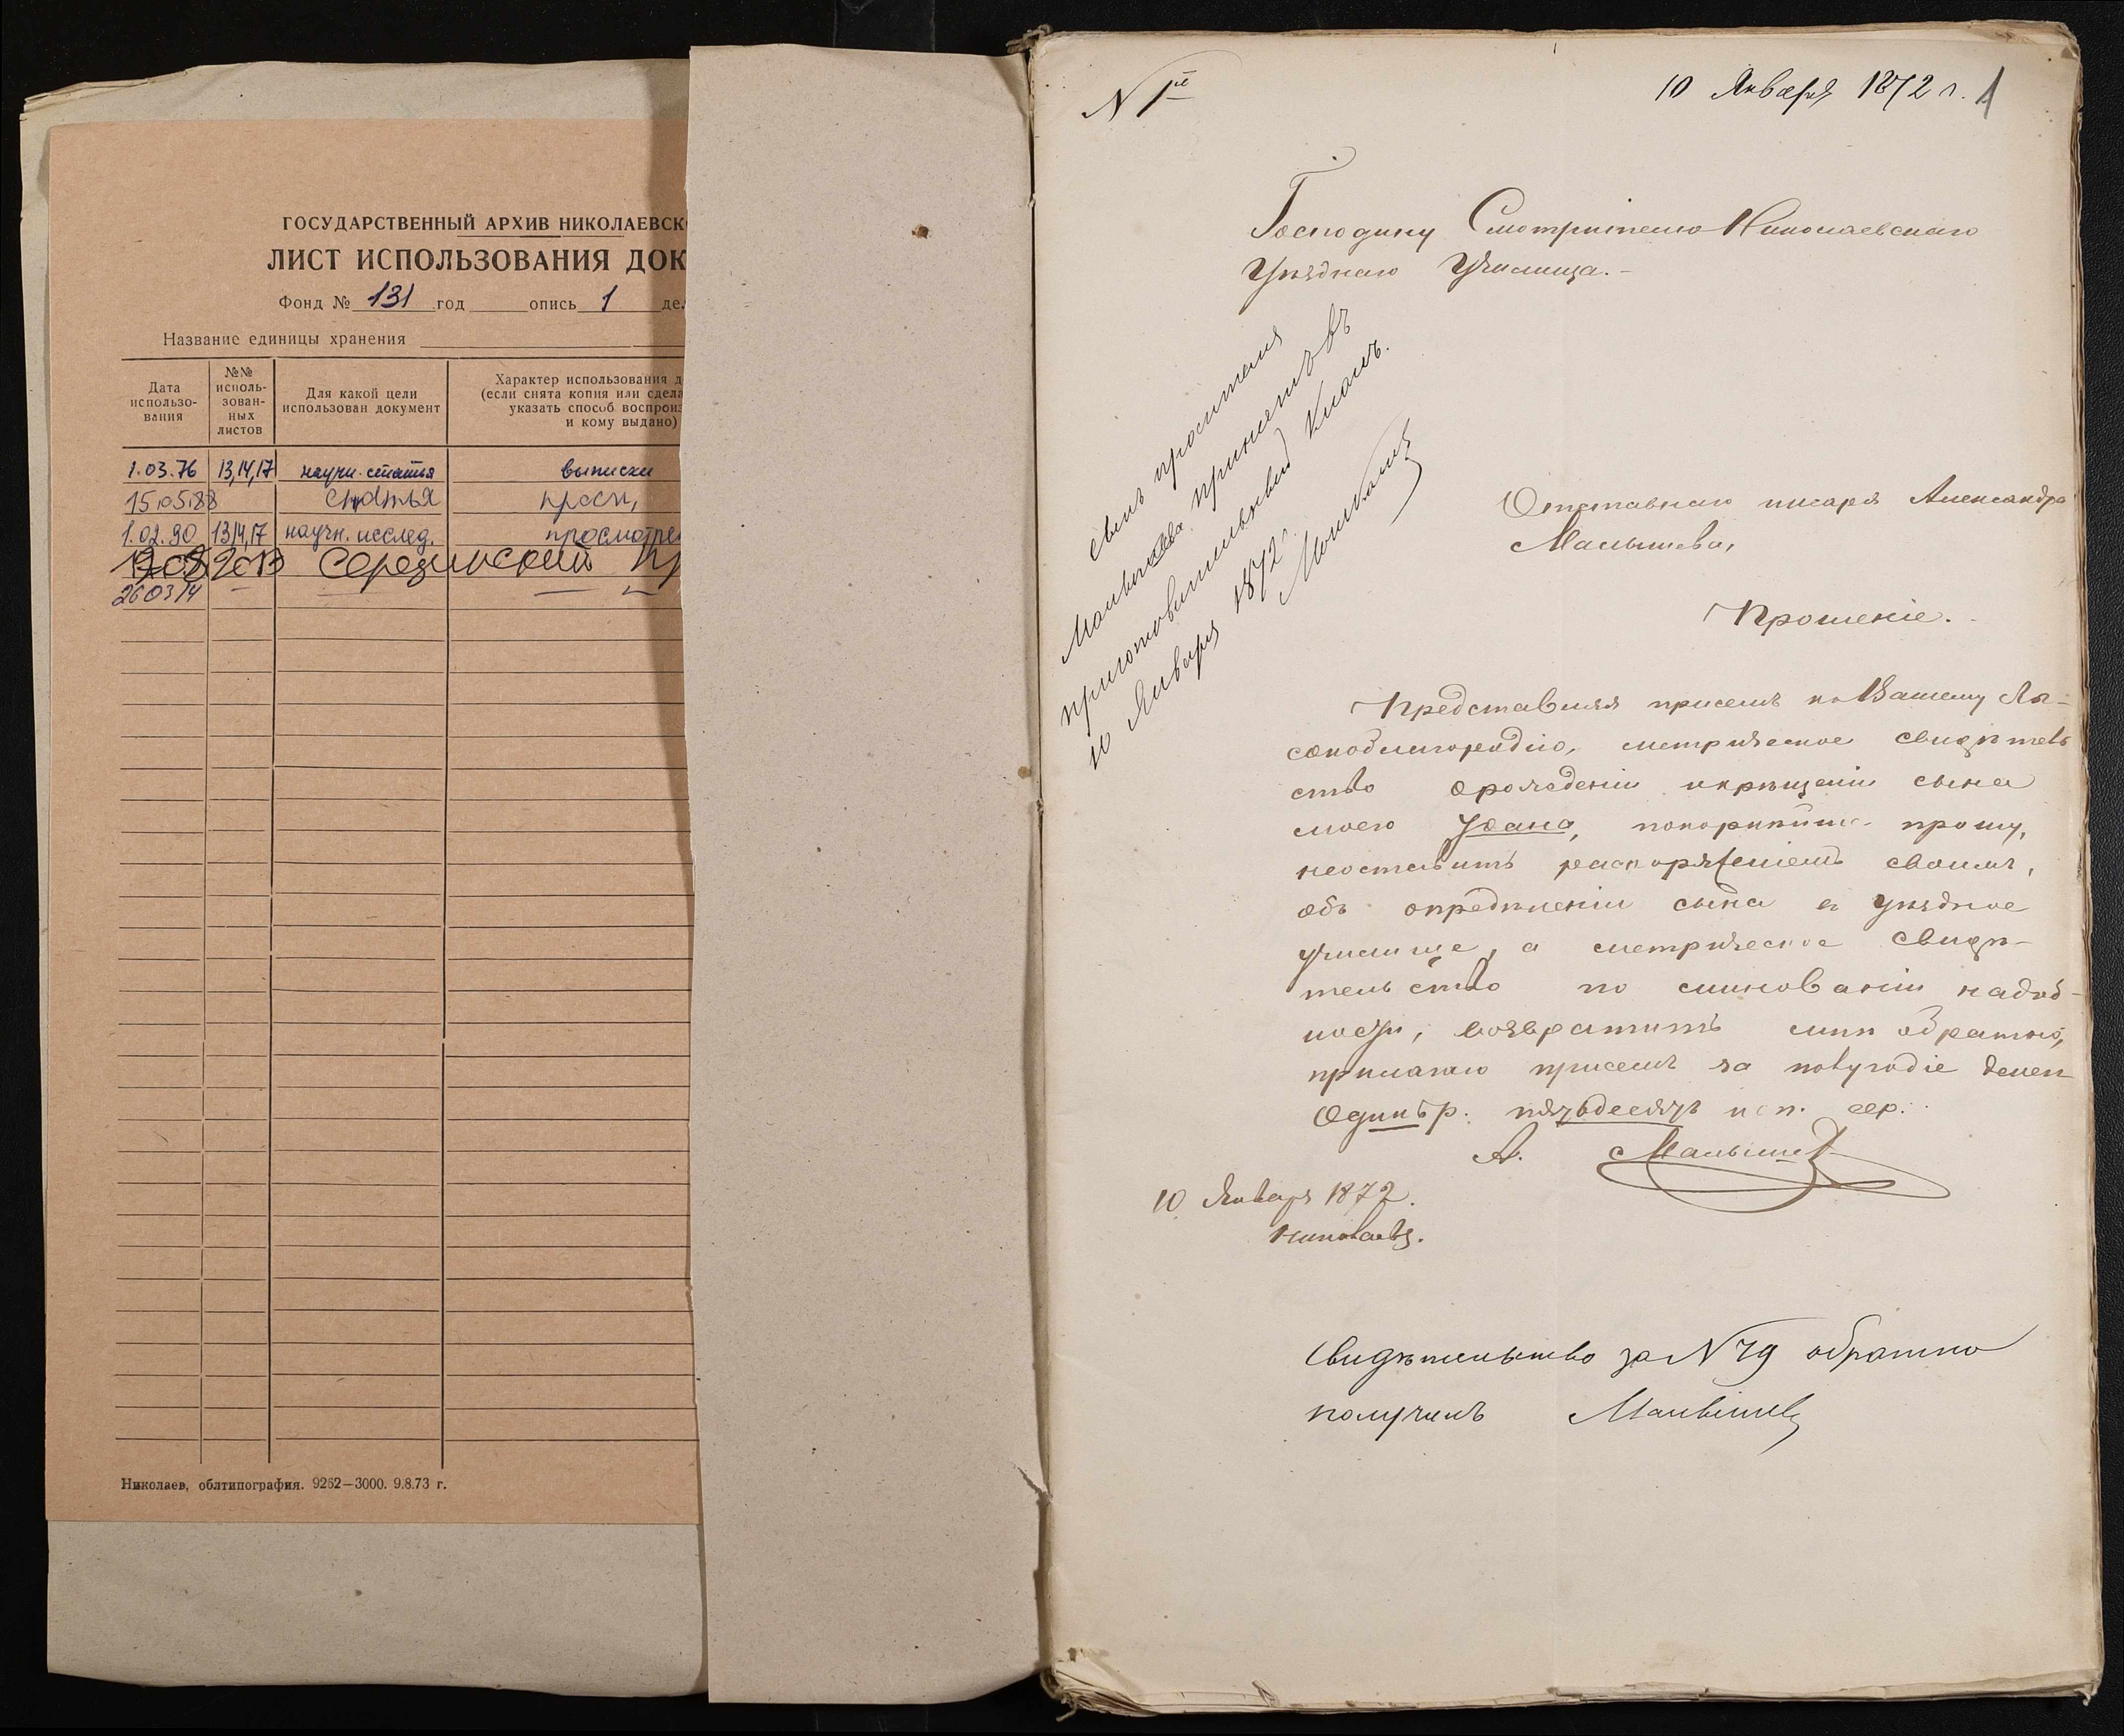 ГОСУДАРСТВЕННЫЙ АРХИВ НИКОЛАЕВСК
ЛИСТ ИСПОЛЬЗОВАНИЯ ДОК
Фонд № 131 год опись 1 де
Название единицы хранения
Дата использо-вания
№№ исполь-зован-ных листов
Для какой цели использован документ
Характер использования д
(если снята копия или сдела
указать способ воспроиз
и кому выдано)
1.03.76 13,14,17 научн. статья выписки
15.05.88 статья просм,
1.02.90 13,14,17 научн. исслед. просмотре
2013 Серединский пр
26 03 14
Николаев, облтипография. 9262—3000. 9.8.73 г.
N 1й
10 Января 1872 г. 1
Господину Смотрителю Николаевскаго
Уѣзднаго Училища.
Сынъ просителя
Малышева принятъ въ
приготовительный класъ.
10 Января 1872 г.
Отставнаго писаря Александра
Малышева,
Прошеніе.
Представляя присемъ къ Вашему Вы-
сокоблагородію, метрическое свидѣтель
ство о рожденіи и крещеніи сына
моего Ивана, покорнѣйше прошу,
неоставить распоряженіемъ своимъ,
объ опредѣленіи сына въ уѣздное
училище, а метрическое свидѣ-
тельство по минованіи надоб-
ности, возвратить мнѣ обратно,
прилагаю присемъ за полугодіе денег
Одинъ р. пятьдесятъ коп. сер.
А. Малышев
10 Января 1872.
Николаевъ.
Свидѣтельство за N 79 обратно
получилъ Малышевъ